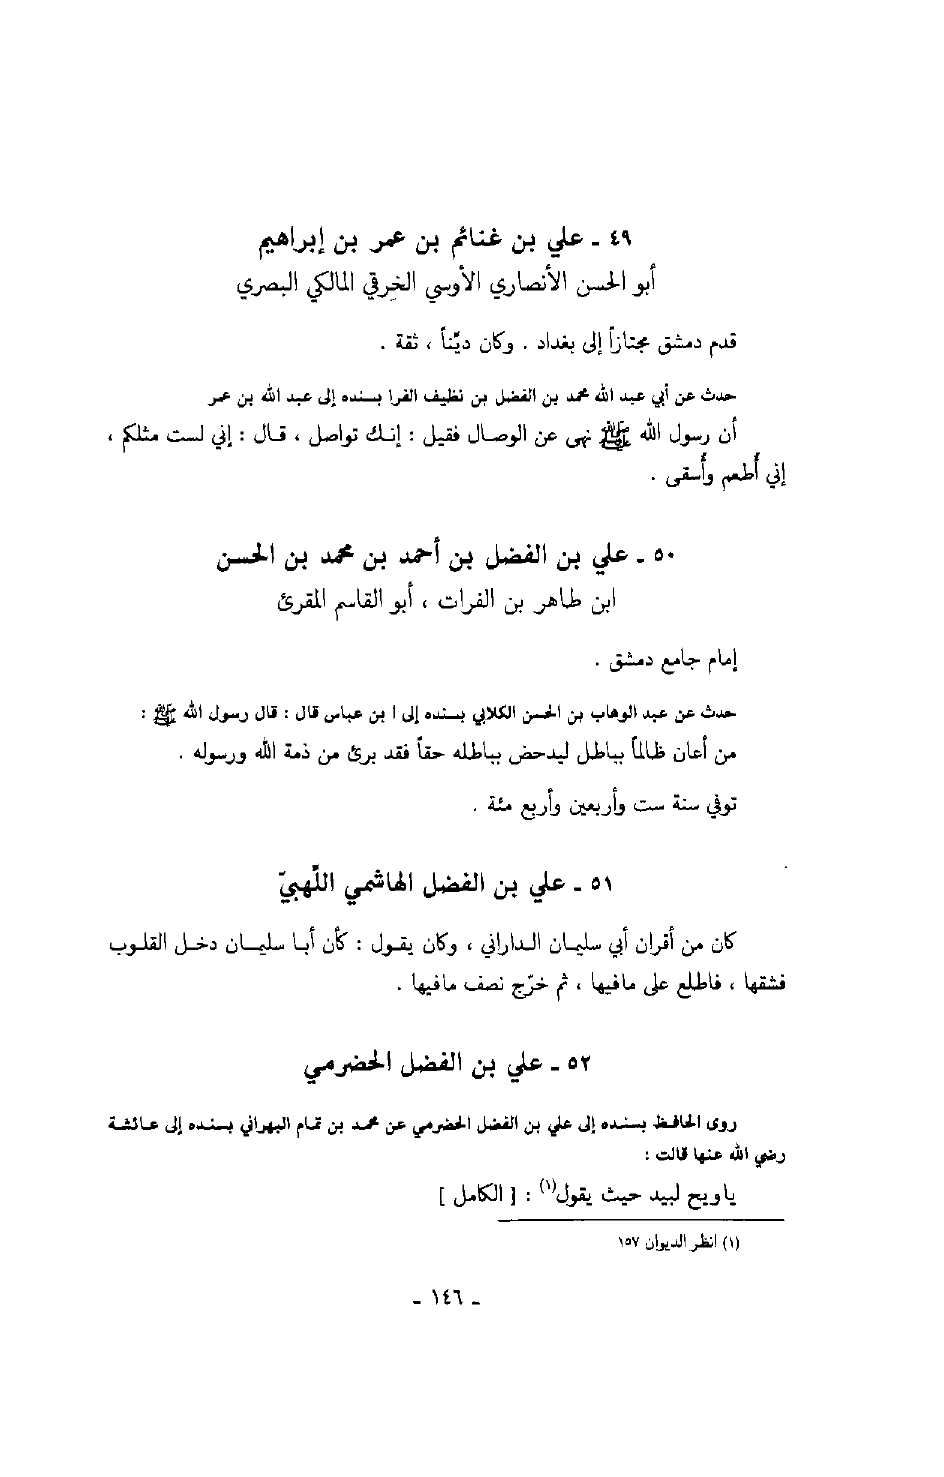 ٤٩ ـ علي بن غنائم بن عمر بن إبراهيم
أبو الحسن الأنصاري الأوسي الخرقي المالكي البصري
قدم دمشق مجتازاً إلى بغداد . وكان ديِّناً ، ثقة .
حدث عن أبي عبد الله محمد بن الفضل بن نظيف الفرا بسنده إلى عبد الله بن عمر
أن رسول الله ﷺ نهى عن الوصال فقيل : إنك تواصل ، قال : إني لست مثلكم ،
إني أُطعم وأُسقى .
٥٠ ـ علي بن الفضل بن أحمد بن محمد بن الحسن
ابن طاهر بن الفرات ، أبو القاسم المقرئ
إمام جامع دمشق .
حدث عن عبد الوهاب بن الحسن الكلابي بسنده إلى ابن عباس قال : قال رسول الله ﷺ :
من أعان ظالماً بباطل ليدحض بباطله حقاً فقد برئ من ذمة الله ورسوله .
توفي سنة ست وأربعين وأربع مئة .
٥١ ـ علي بن الفضل الهاشمي اللَّهبيّ
كان من أقران أبي سليمان الداراني ، وكان يقول : كأن أبا سليمان دخل القلوب
فشقها ، فاطلع على مافيها ، ثم خرّج نصف مافيها .
٥٢ ـ علي بن الفضل الحضرمي
روى الحافظ بسنده إلى علي بن الفضل الحضرمي عن محمد بن تمام البهراني بسنده إلى عائشة
رضي الله عنها قالت :
ياويح لبيد حيث يقول(١) : [ الكامل ]
(١) انظر الديوان ١٥٧
ـ ١٤٦ ـ